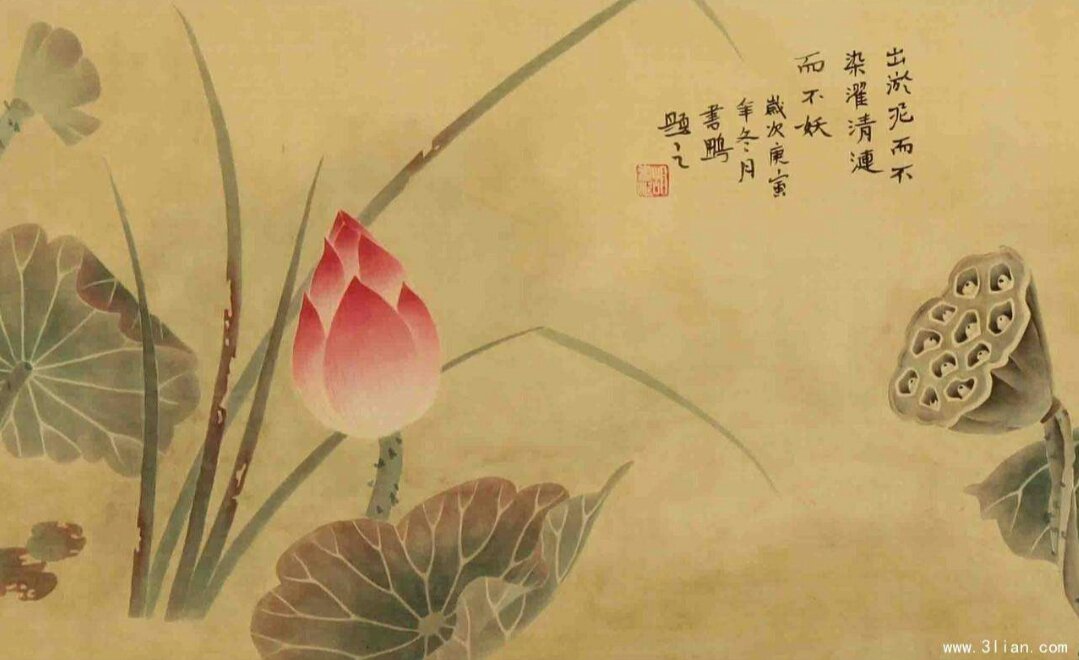 出淤泥而不
染濯清漣
而不妖
歲次庚寅
年冬月
書鵬
題之
www.3lian.com